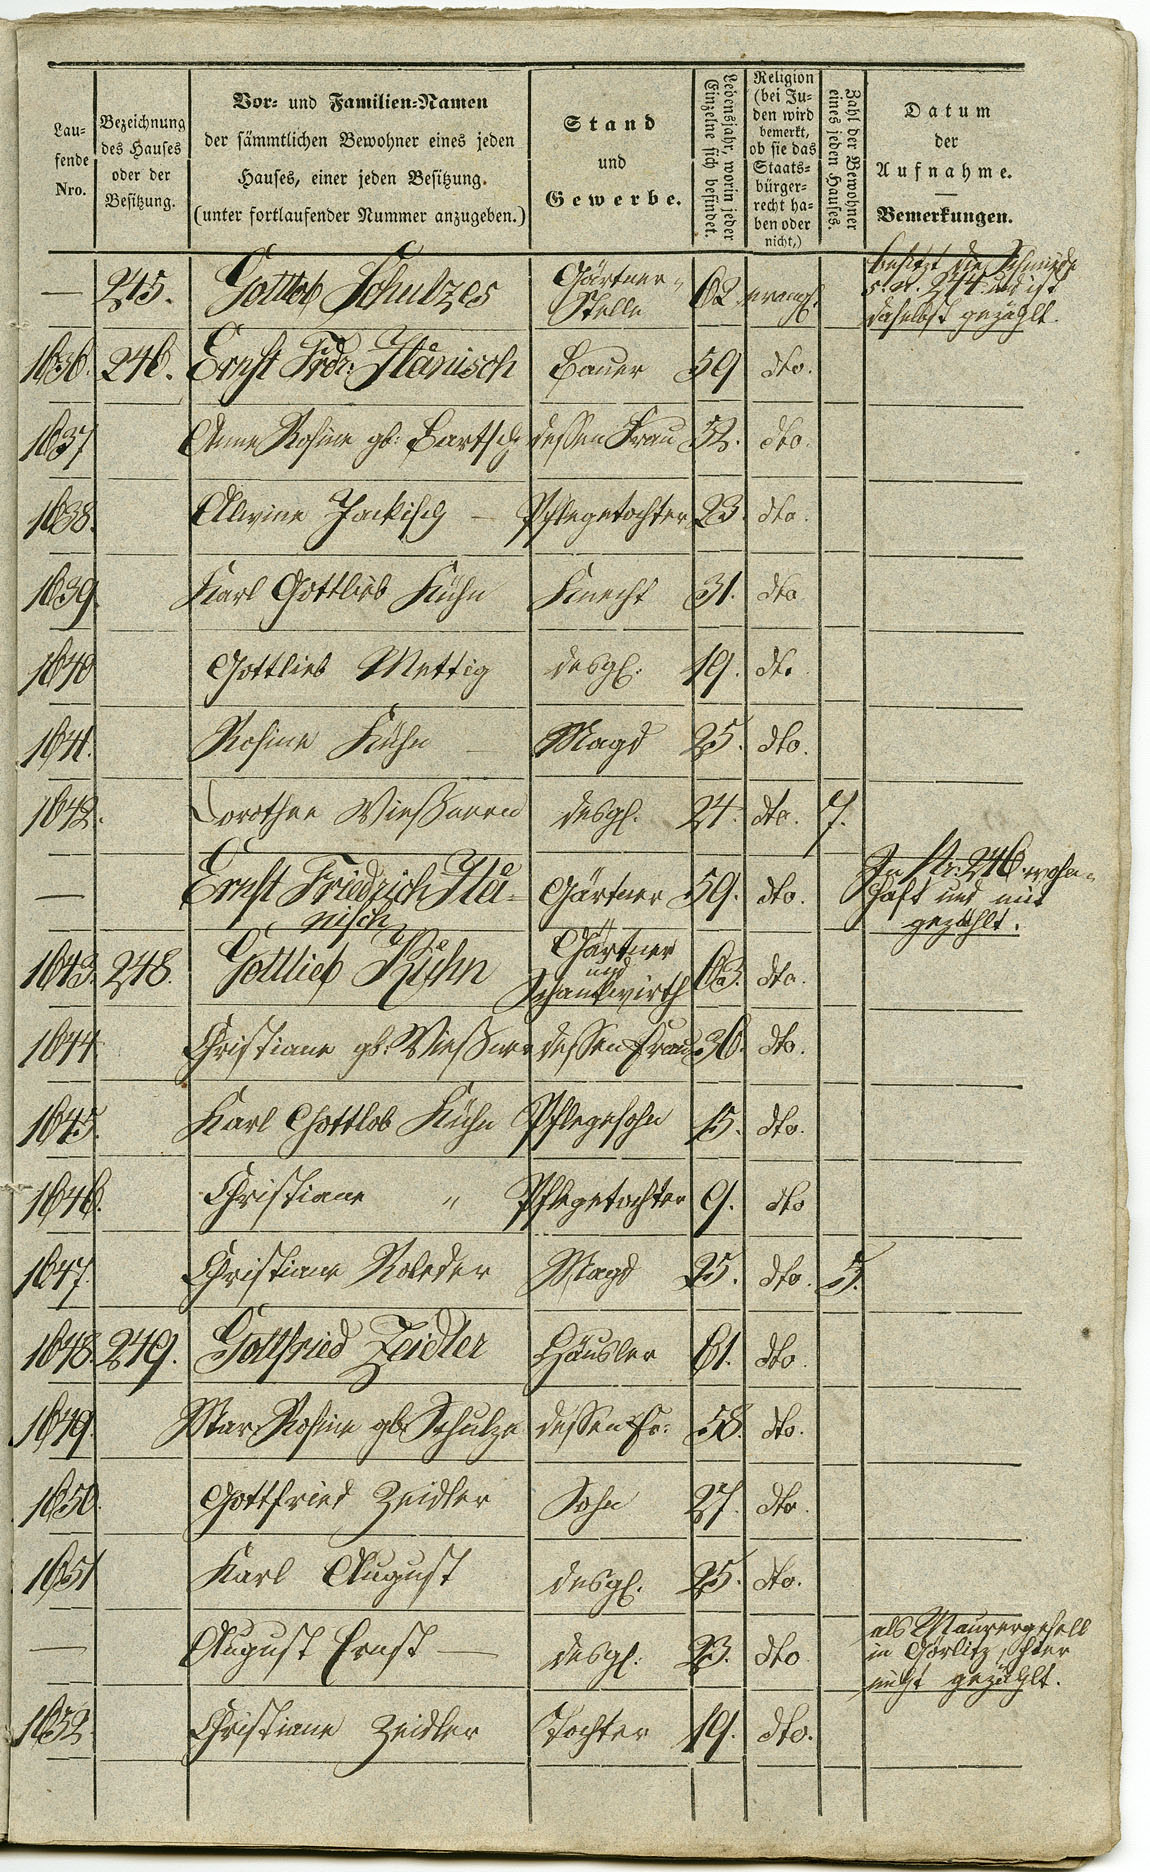 Lau-
fende
Nro.
Bezeichnung
des Hauses
oder der
Besitzung.
Vor- und Familien-Namen
der sämmtlichen Bewohner eines jeden
Hauses, einer jeden Besitzung.
(unter fortlaufender Nummer anzugeben.)
Stand
und
Gewerbe.
Lebensjahr, worin jeder
Einzelne sich befindet.
Religion
(bei Ju-
den wird
bemerkt,
ob sie das
Staats-
bürger-
recht ha-
ben oder
nicht,)
Zahl der Bewohner
eines jeden Hauses.
Datum
der
Aufnahme.
Bemerkungen.
— 245. Gottlob Schulzes Gärtner-Stelle 62 evangl. besitzt die Schmiede
s. N. 244 und ist
daselbst gezählt.
1636. 246. Ernst Frdr. Hänisch Bauer 59 dto.
1637 Anne Rosine gb: Bartsch dessen Frau 52. dto.
1638. Alwine Jackisch — Pflegetochter 23. dto.
1639 Karl Gottlieb Kühn Knecht 31. dto
1640 Gottlieb Mettig desgl. 19. dto
1641. Rosine Kühn — Magd 25. dto.
1642. Dorothee Wießner desgl. 24. dto. 7.
— Ernst Friedrich Hä-
nisch Gärtner 59. dto. In Nr. 246 wohn-
haft und mit
gezählt.
1643. 248. Gottlieb Kühn Gärtner
und
Schankwirth 63. dto.
1644 Christiane gb: Wießner dessen Frau 36. dto.
1645. Karl Gottlob Kühn Pflegesohn 15. dto.
1646. Christiane " Pflegetochter 9. dto
1647. Christiane Roleder Magd 25. dto. 5.
1648. 249. Gottfried Zeidler Häusler 61. dto.
1649. Mar. Rosine gb. Schulze dessen Fr: 58. dto.
1650. Gottfried Zeidler Sohn 27. dto.
1651 Karl August desgl. 25. dto.
— August Ernst — desgl. 23. dto als Maurergesell
in Görlitz,
nicht gezählt.
1652. Christiane Zeidler Tochter 19. dto.